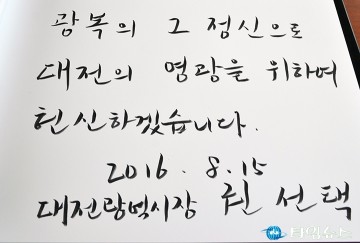 광복의 그 정신으로
대전의 영광을 위하여
헌신하겠습니다.
2016. 8. 15
대전광역시장 권선택